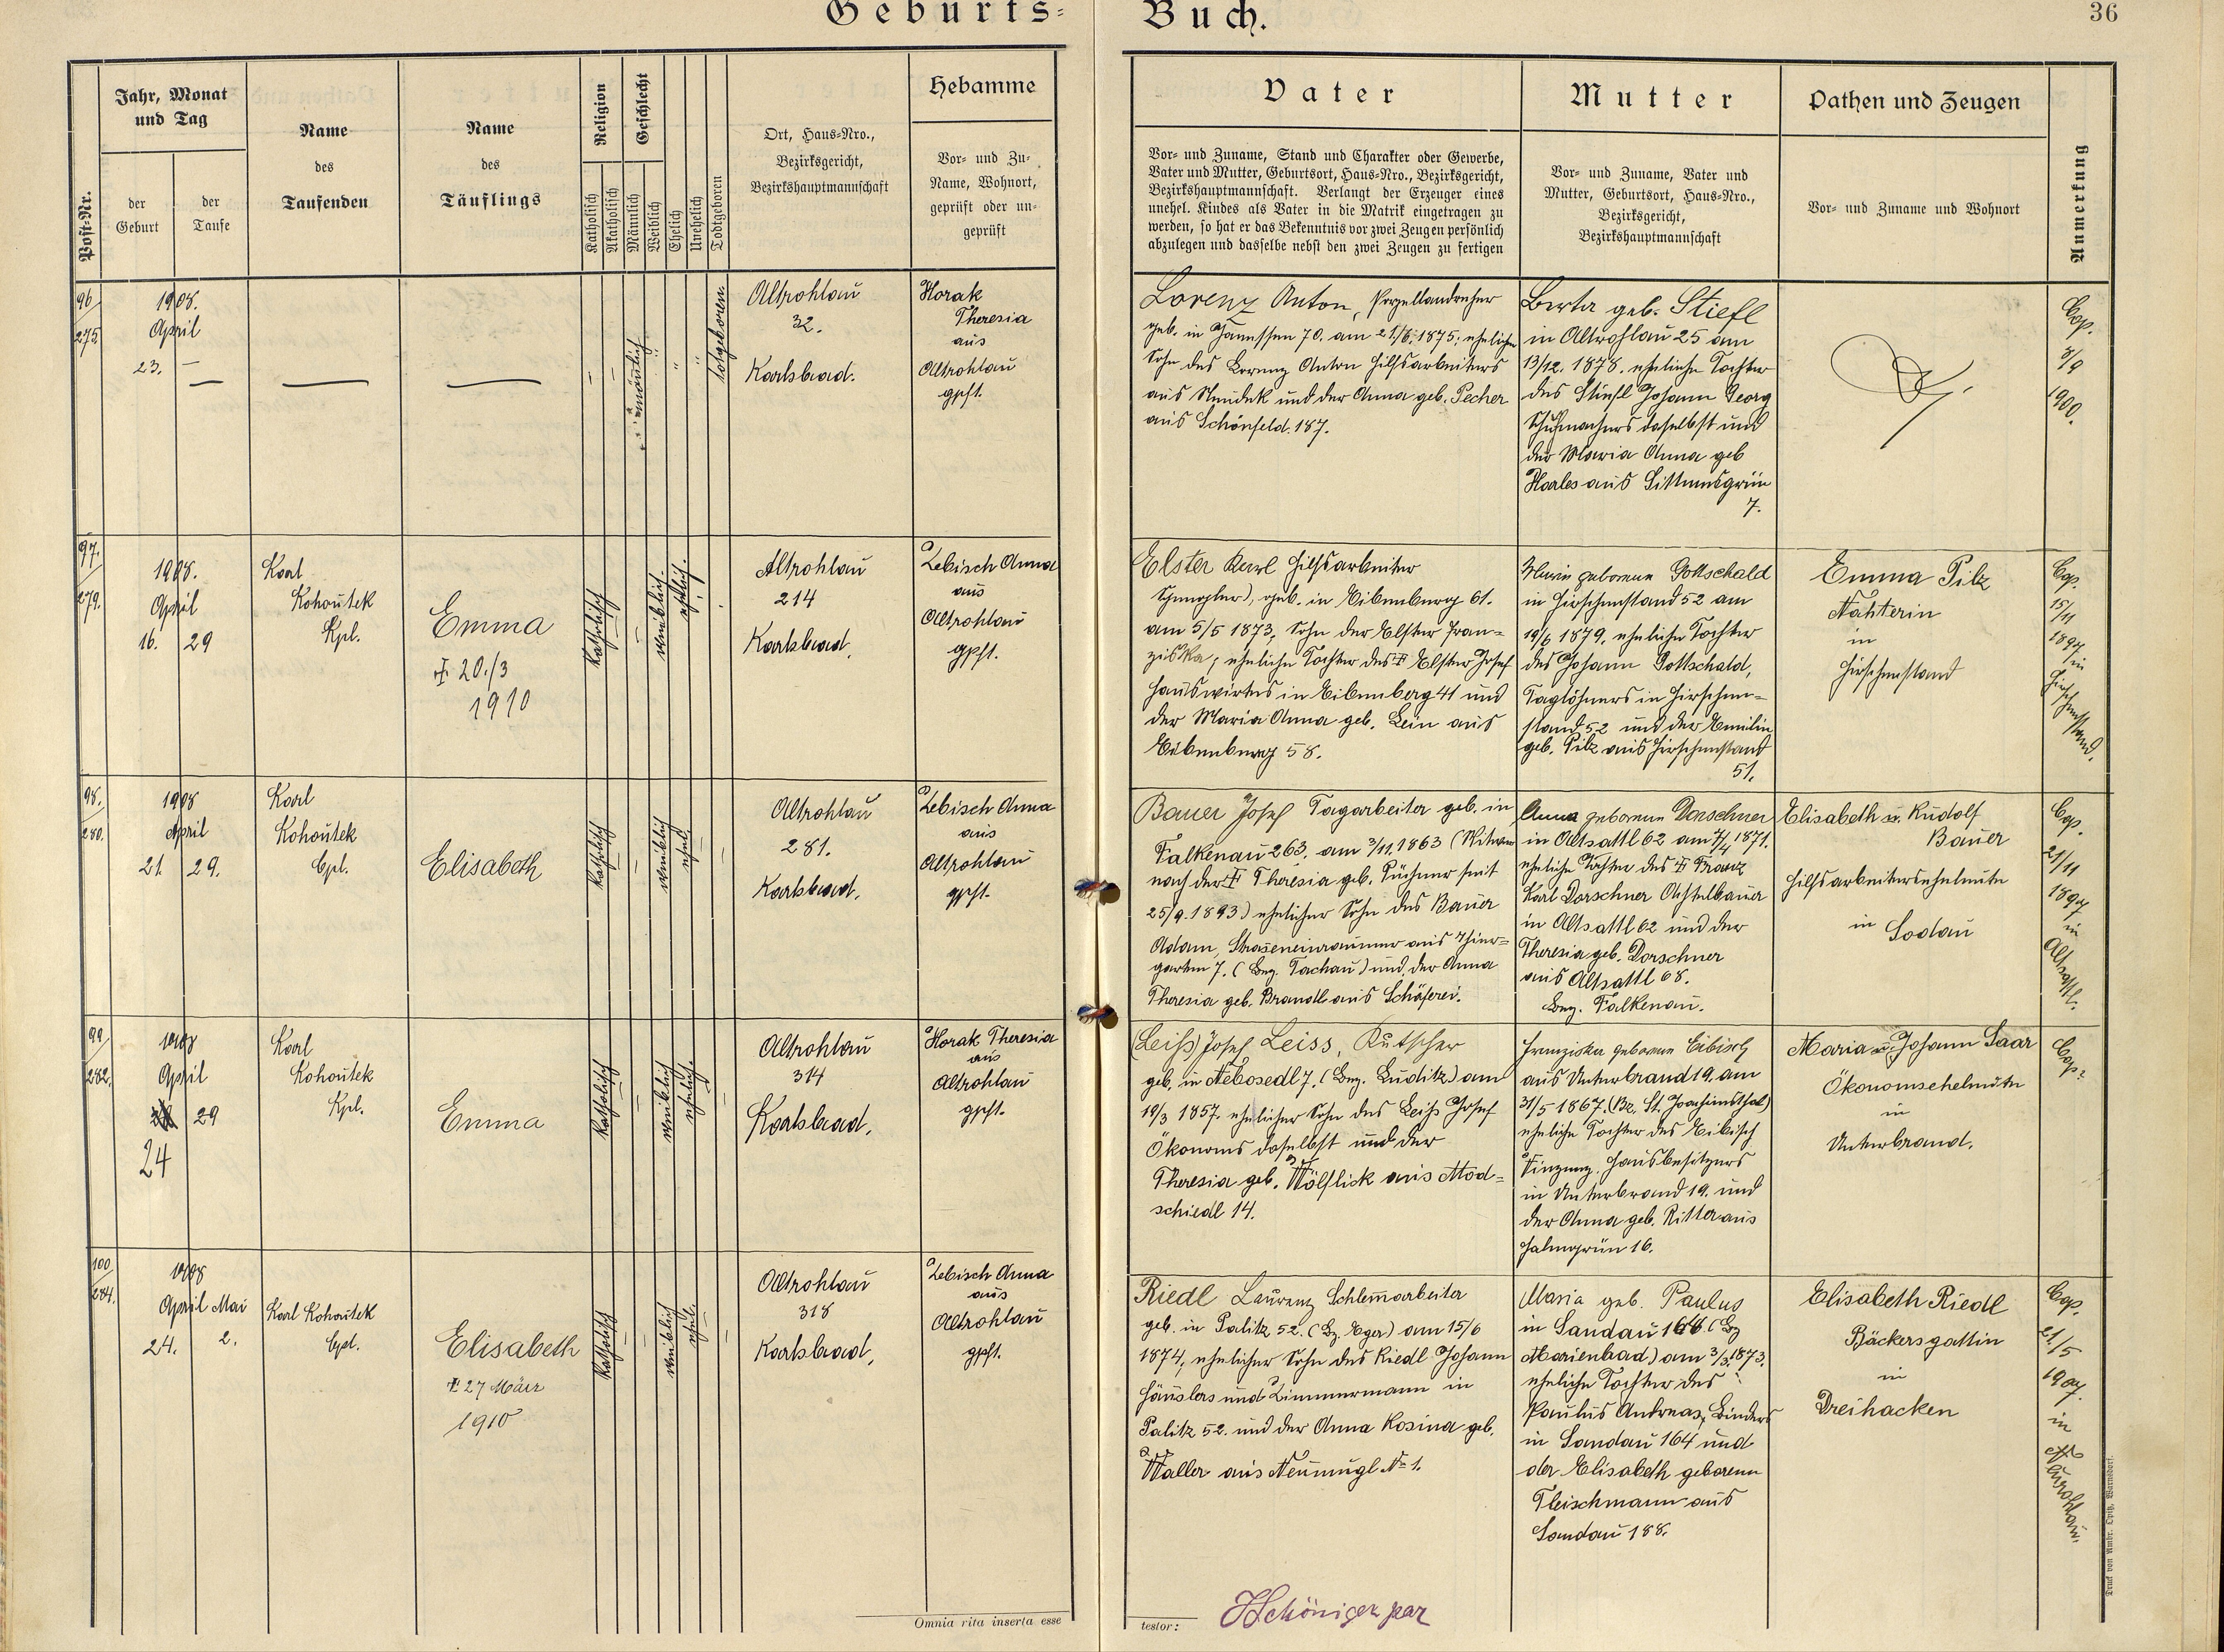 Geburts=
Buch.
36
Post-Nr.
Jahr, Monat
und Tag
der
Geburt
der
Taufe
Name
des
Taufenden
Name
des
Täuflings
Religion
Katholisch
Akatholisch
Geschlecht
Männlich
Weiblich
Ehelich
Unehelich
Todtgeboren
Ort, Haus-Nro.,
Bezirksgericht,
Bezirkshauptmannschaft
Hebamme
Vor- und Zu-
Name, Wohnort,
geprüft oder un-
geprüft
Vater
Vor- und Zuname, Stand und Charakter oder Gewerbe,
Vater und Mutter, Geburtsort, Haus-Nro., Bezirksgericht,
Bezirkshauptmannschaft. Verlangt der Erzeuger eines
unehel. Kindes als Vater in die Matrik eingetragen zu
werden, so hat er das Bekenntnis vor zwei Zeugen persönlich
abzulegen und dasselbe nebst den zwei Zeugen zu fertigen
Mutter
Vor- und Zuname, Vater und
Mutter, Geburtsort, Haus-Nro.,
Bezirksgericht,
Bezirkshauptmannschaft
Pathen und Zeugen
Vor- und Zuname und Wohnort
Anmerkung
96
275
1908.
April
23. —
männlich
totgeboren.
Altrohlau
32.
Karlsbad.
Horak
Theresia
aus
Altrohlau
gpft.
Lorenz Anton, Porzellandreher
geb. in Janessen 70. am 21/6. 1875; ehelicher
Sohn des Lorenz Anton Hilfsarbeiters
aus Neudek und der Anna geb. Pecher
aus Schönfeld. 187.
Berta geb. Stiefl
in Altrohlau 25 am
13/12. 1878. eheliche Tochter
des Stiefl Johann Georg
Schuhmachers daselbst und
der Maria Anna geb
aus Sittmesgrün
7.
Cop.
3/9
1900.
97.
279.
1908.
April
16. 29
Karl
Kohoutek
Kpl.
Emma
20./3
1910
katholisch
weiblich
ehelich
Altrohlau
214
Karlsbad.
Lebisch Anna
aus
Altrohlau
gpft.
Elster Karl Hilfsarbeiter
(Spengler), geb. in Eibenberg 61.
am 5/5 1873, Sohn der Elster Fran=
ziska, eheliche Tochter des Elster Josef
Hauswirtes in Eibenberg 41 und
der Maria Anna geb. Lein aus
Eibenberg 58.
Marie geborene Gottschald
in Hirschenstand 52 am
19/6 1879. eheliche Tochter
des Johann Gottschald,
Taglöhners in Hirschen=
stand 52 und der Emilie
geb. Pilz aus Hirschenstand
51.
Emma Pilz
Nähterin
in
Hirschenstand
Cop.
15/11
1897
in
Hirschenstand.
98.
280.
1908
April
21. 29.
Karl
Kohoutek
Cpl.
Elisabeth
katholisch
weiblich
ehel.
Altrohlau
281.
Karlsbad.
Lebisch Anna
aus
Altrohlau
gpft.
Bauer Josef Tagarbeiter geb. in
Falkenau 263. am 3/11. 1863 (Witwer
nach der Theresia geb. seit
25/9. 1893) ehelicher Sohn des Bauer
Adam, Straseneinräumer aus Thier=
garten 7. (Bez. Tachau) und der Anna
Theresia geb. Brandl aus Schäferei.
Anna geborene Dorschner
in Altsattl 62 am 7/4 1871.
eheliche Tochter des Franz
Karl Dorschner Achtelbauer
in Altsattl 62 und der
Theresia geb. Dorschner
aus Altsattl 68.
Bez. Falkenau.
Elisabeth u. Rudolf
Bauer
Hilfsarbeiterseheleute
in Sodau
Cop.
21/11
1897
in
Altsattl.
99
282.
1908
April
29
24
Karl
Kohoutek
Kpl.
Emma
katholisch
weiblich
ehelich
Altrohlau
314
Karlsbad.
Horak Theresia
aus
Altrohlau
gpft.
(Leiß) Josef Leiss, Kutscher
geb. in Nebosedl 7, (Bez. Luditz) am
19/3 1857. ehelicher Sohn des Leiß Josef
Ökonoms daselbst und der
Theresia geb. Wölflick aus Mod=
schiedl 14.
Franziska geborene Eibisch
aus Unterbrand 19. am
31/5 1867. (Bz. St. Joachimsthal)
eheliche Tochter des Eibisch
Vinzenz, Hausbesitzers
in Unterbrand 19. und
der Anna geb. Ritter aus
Salmgrün 16.
Maria u. Johann Saar
Ökonomseheleute
in
Unterbrand.
Cop.
100
284.
1908
April Mai
24. 2.
Karl Kohoutek
Cpl.
Elisabeth
27 März
1910
katholisch
weiblich
ehel.
Altrohlau
318
Karlsbad.
Lebisch Anna
aus
Altrohlau
gpft.
Riedl Laurenz Schlemarbeiter
geb. in Palitz 52. (Bz. Eger) am 15/6
1874, ehelicher Sohn des Riedl Johann
Häuslers und Zimmermann in
Palitz 52. und der Anna Rosina geb.
Waller aus Neumugl No 1.
Maria geb. Paulus
in Sandau 164 (Bz
Marienbad) am 3/3. 1873.
eheliche Tochter des
Paulus Andreas, Binders
in Sandau 164 und
der Elisabeth geborene
Fleischmann aus
Sandau 188.
Elisabeth Riedl
Bäckersgattin
in
Dreihacken
Cop.
21/5
1907.
in
Omnia rita inserta esse
testor:
Druck von Ambr. Opitz, Warnsdorf.